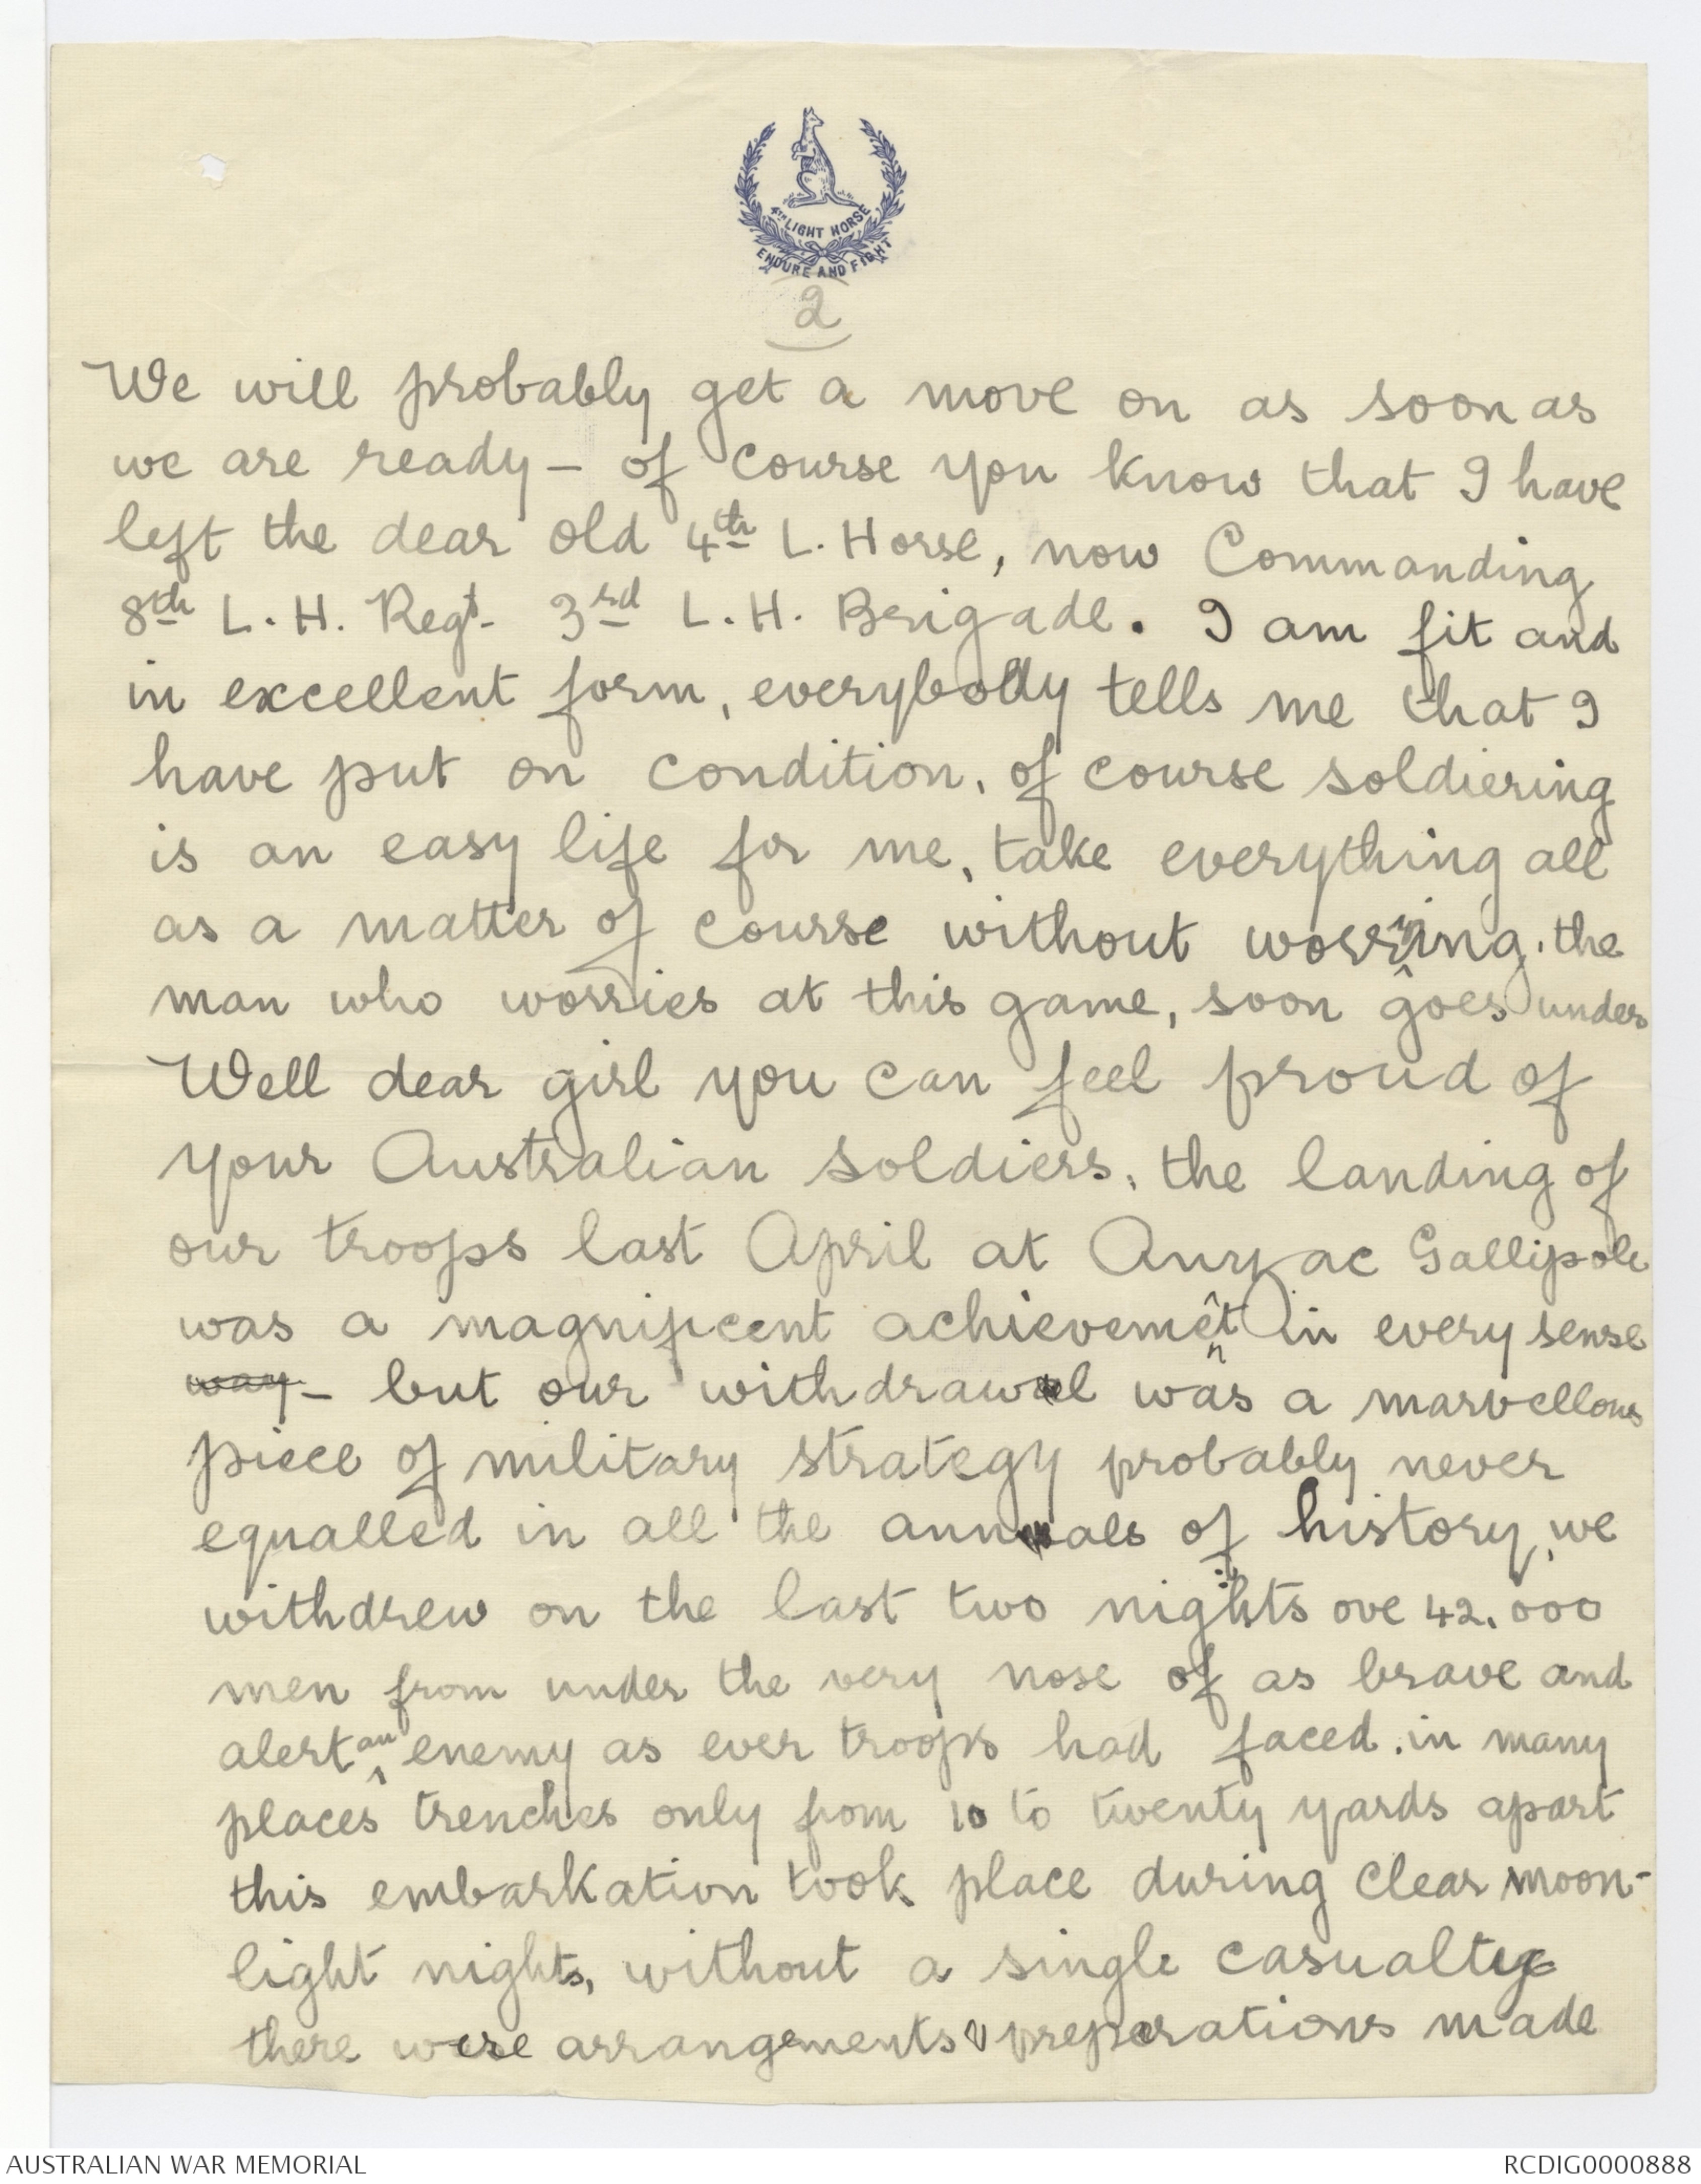 4TH LIGHT HORSE
ENDURE AND FIGHT
2
We will probably get a move on as soon as
we are ready – of course you know that I have
left the dear old 4th L. Horse, now Commanding
8th L. H. Regt. 3rd L. H. Brigade. I am fit and
in excellent form, everybody tells me that I
have put on condition, of course soldiering
is an easy life for me, take everything all
as a matter of course without worrying, the
man who worries at this game, soon goes under
Well dear girl you can feel proud of
your Australian soldiers, the landing of
our troops last April at Anzac Gallipoli
was a magnificent achievement in every sense
way – but our withdrawal was a marvellous
piece of military strategy probably never
equalled in all the annals of history, we
withdrew on the last two nights ove 42,000
men from under the very nose of as brave and
alert an enemy as ever troops had faced, in many
places trenches only from 10 to twenty yards apart
this embarkation took place during clear moon-
light nights, without a single casualty
there were arrangements & preparations made
AUSTRALIAN WAR MEMORIAL
RCDIG0000888